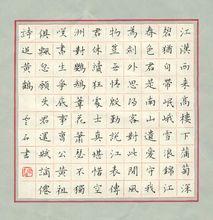 江漢西來高樓下蒲萄深
碧猶自帶岷峨雪浪錦江
春色君是南山遺愛守我
為劍外思歸客對此間風
物豈無情殷勤說江表傳
君休讀狂處士真堪惜空
洲對鸚鵡葦花蕭瑟不獨
笑書生爭底事曹公黃祖
俱飄忽願使君還賦謫僊
詩追黃鶴 云石書